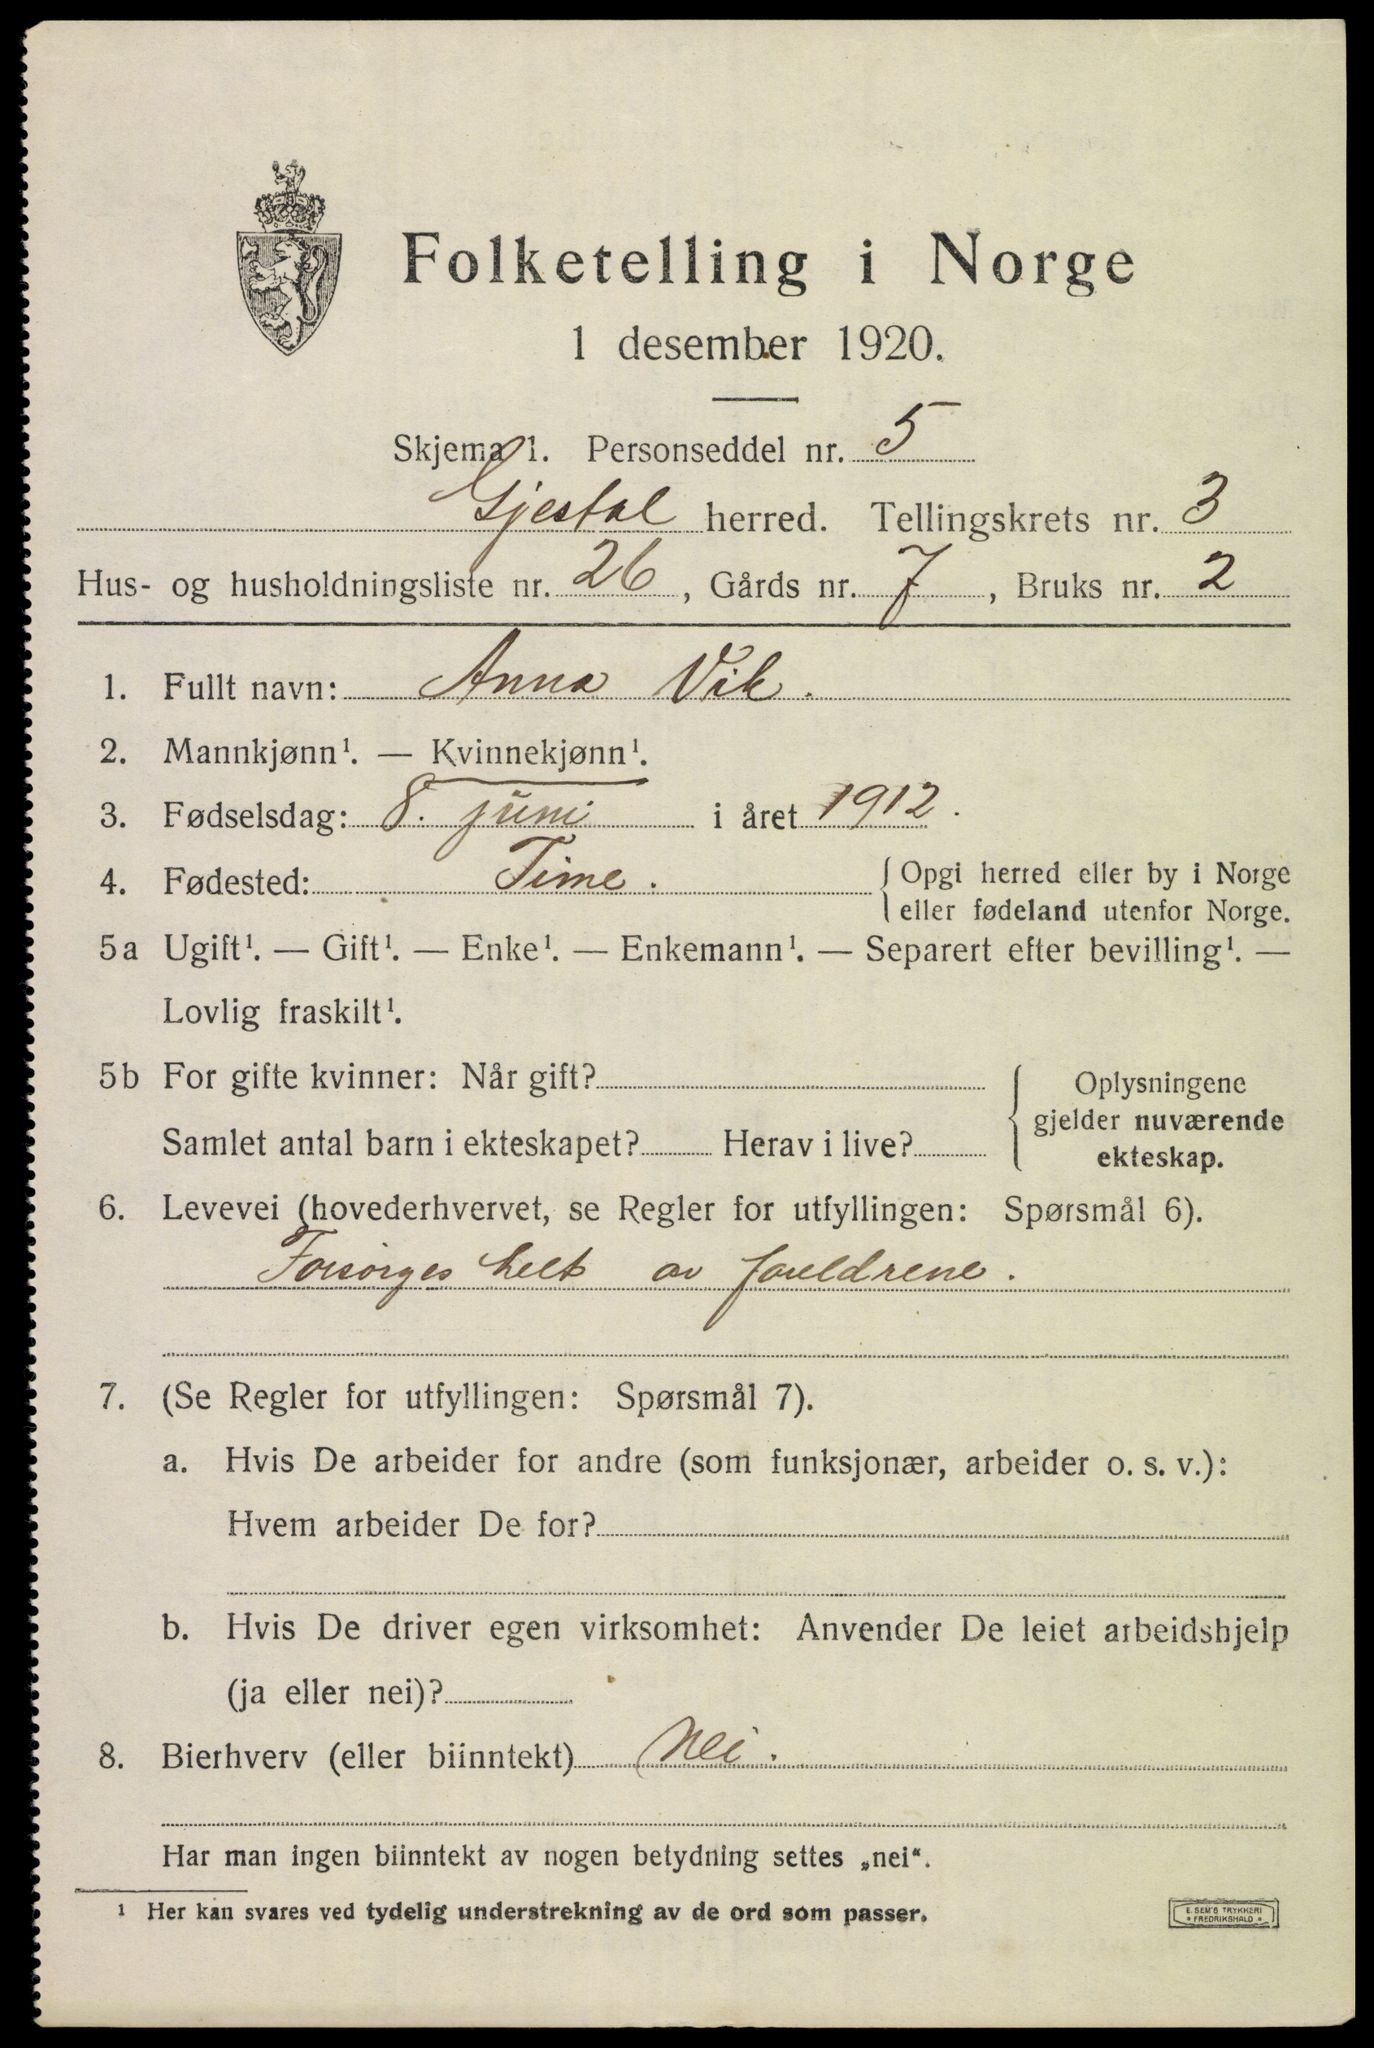 Folketelling i Norge
1 desember 1920.
Skjema 1. Personseddel nr. 5
Gjestal herred. Tellingskrets nr. 3
Hus- og husholdningsliste nr. 26, Gårds nr. 7, Bruks nr. 2
1. Fullt navn: Anna Vik.
2. Mannkjønn¹. — Kvinnekjønn¹.
3. Fødselsdag: 8. juni i året 1912.
4. Fødested: Time. { Opgi herred eller by i Norge
eller fødeland utenfor Norge.
5a Ugift¹. — Gift¹. — Enke¹. — Enkemann¹. — Separert efter bevilling¹. —
Lovlig fraskilt¹.
5b For gifte kvinner: Når gift? { Oplysningene
gjelder nuværende
Samlet antal barn i ekteskapet? Herav i live?
ekteskap.
6. Levevei (hovederhvervet, se Regler for utfyllingen: Spørsmål 6).
Forsørges helt av foreldrene.
7. (Se Regler for utfyllingen: Spørsmål 7).
a. Hvis De arbeider for andre (som funksjonær, arbeider o. s. v.):
Hvem arbeider De for?
b. Hvis De driver egen virksomhet: Anvender De leiet arbeidshjelp
(ja eller nei)?
8. Bierhverv (eller biinntekt) Nei.
Har man ingen biinntekt av nogen betydning settes „nei“.
¹ Her kan svares ved tydelig understrekning av de ord som passer.
E. SEM'S TRYKKERI
* FREDRIKSHALD *